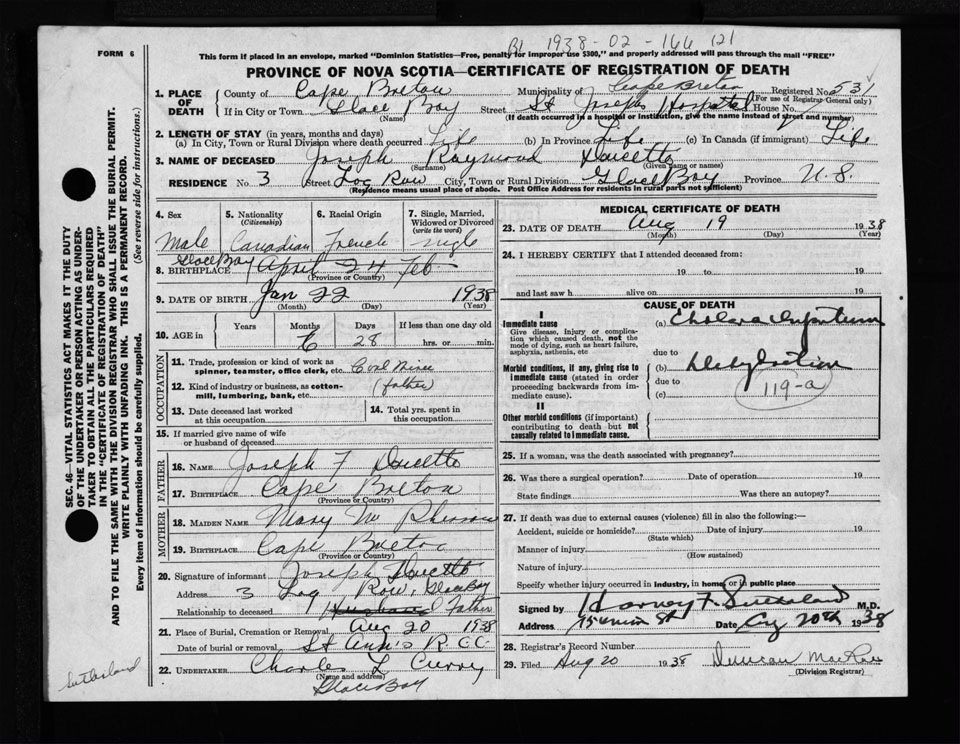 1938-02-166 121
FORM 6
This form if placed in an envelope, marked "Dominion Statistics—Free, penalty for improper use $300," and properly addressed will pass through the mail "FREE"
PROVINCE OF NOVA SCOTIA—CERTIFICATE OF REGISTRATION OF DEATH
1. PLACE OF DEATH
County of Cape Breton Municipality of Cape Breton Registered No. 531
(For use of Registrar-General only)
If in City or Town Glace Bay Street St Josephs Hospital House No.
(Name) (If death occurred in a hospital or institution, give the name instead of street and number)
2. LENGTH OF STAY (in years, months and days)
(a) In City, Town or Rural Division where death occurred Life (b) In Province Life (c) In Canada (if immigrant) Life
3. NAME OF DECEASED Joseph Raymond Doucette
(Surname) (Given name or names)
RESIDENCE No. 3 Street Log Row City, Town or Rural Division Glace Bay Province N.S.
(Residence means usual place of abode. Post Office Address for residents in rural parts not sufficient)
SEC. 46—VITAL STATISTICS ACT MAKES IT THE DUTY
OF THE UNDERTAKER OR PERSON ACTING AS UNDER-
TAKER TO OBTAIN ALL THE PARTICULARS REQUIRED
IN THE "CERTIFICATE OF REGISTRATION OF DEATH"
AND TO FILE THE SAME WITH THE DIVISION REGISTRAR WHO SHALL ISSUE THE BURIAL PERMIT.
WRITE PLAINLY WITH UNFADING INK. THIS IS A PERMANENT RECORD.
Every item of information should be carefully supplied. (See reverse side for instructions.)
4. Sex
Male
5. Nationality
(Citizenship)
Canadian
6. Racial Origin
French
7. Single, Married,
Widowed or Divorced
(write the word)
single
Glace Bay
8. BIRTHPLACE April 24 Feb
(Province or Country)
9. DATE OF BIRTH Jan 22 1938
(Month) (Day) (Year)
10. AGE in
Years Months Days If less than one day old
6 28 hrs. or min.
OCCUPATION
11. Trade, profession or kind of work as
spinner, teamster, office clerk, etc. Coal Miner
12. Kind of industry or business, as cotton-
mill, lumbering, bank, etc. (father)
13. Date deceased last worked
at this occupation
14. Total yrs. spent in
this occupation
15. If married give name of wife
or husband of deceased
FATHER
16. NAME Joseph F Doucette
17. BIRTHPLACE Cape Breton
(Province or Country)
MOTHER
18. MAIDEN NAME Mary Mc Pherson
19. BIRTHPLACE Cape Breton
(Province or Country)
20. Signature of informant Joseph Doucette
Address 3 Log Row, Glace Bay
Relationship to deceased Husband father
21. Place of Burial, Cremation or Removal Aug 20 1938
Date of burial or removal St Ann's R C C
22. UNDERTAKER Charles L Curry
(Name and address)
Glace Bay
Sutherland
MEDICAL CERTIFICATE OF DEATH
23. DATE OF DEATH Aug 19 1938
(Month) (Day) (Year)
24. I HEREBY CERTIFY that I attended deceased from:
19 to 19
and last saw h alive on 19
CAUSE OF DEATH
I
Immediate cause
Give disease, injury or complica-
tion which caused death, not the
mode of dying, such as heart failure,
asphyxia, asthenia, etc
(a) Cholera Infantum
due to
Morbid conditions, if any, giving rise to
immediate cause (stated in order
proceeding backwards from im-
mediate cause).
(b) Dehydration
due to
(c)
119-a
II
Other morbid conditions (if important)
contributing to death but not
causally related to immediate cause.
25. If a woman, was the death associated with pregnancy?
26. Was there a surgical operation? Date of operation 19
State findings Was there an autopsy?
27. If death was due to external causes (violence) fill in also the following:—
Accident, suicide or homicide? Date of injury 19
(State which)
Manner of injury
(How sustained)
Nature of injury
Specify whether injury occurred in industry, in home, or in public place
Signed by Harvey F. Sutherland M.D.
Address Date Aug 20th 1938
28. Registrar's Record Number
29. Filed Aug 20 1938 Duncan MacRae
(Division Registrar)